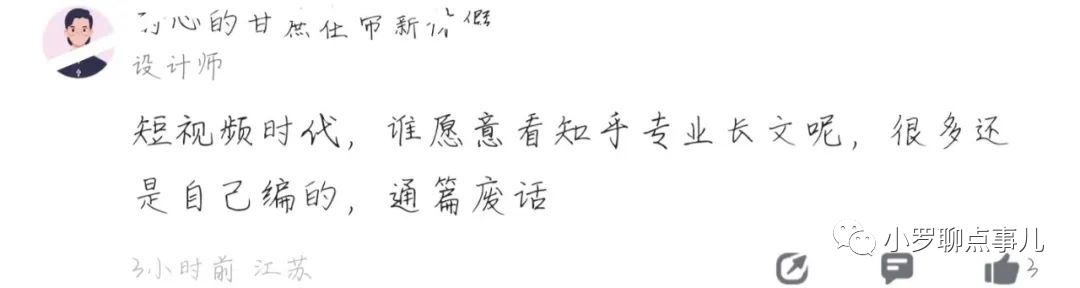 心的甘蔗在带新
设计师
短视频时代，谁愿意看知乎专业长文呢，很多还
是自己编的，通篇废话
3小时前 江苏
小罗聊点事儿
3